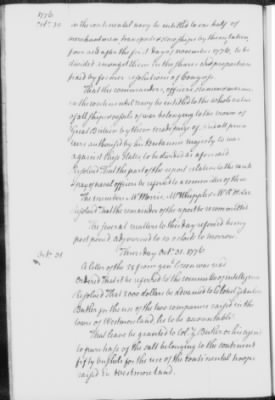 1776
Oct. 30
in the continental navy be entitled to one half of
merchantmen transports & store ships by them taken
from and after the first day of november 1776, to be
divided amongst them in the shares and proportions
fixed by former resolutions of Congress.
That the commanders, officers seamen & marines
in the continental navy be entitled to the whole value
of all ships & vessels of war belonging to the crown of
Great Britain by them made prize of, & all privateers
authorised by his Britannic majesty to war
against these states to be divided as aforesaid
Resolved That the part of the report relative to the rank
& pay of naval officers be referred to a committee of three
The members Mr Morris, Mr Whipple & Mr R. H. Lee
Resolved That the remainder of the report be recommitted
The several matters to this day referred being
postponed adjourned to 10 o'clock to morrow.
Oct. 31
Thursday Oct. 31. 1776
A letter of the 28 from genl Green was read
Ordered That it be referred to the committee of intelligence
Resolved That 2000 dollars be advanced to Colonel Zebulon
Butler for the use of the two companies raised in the
town of Westmoreland, he to be accountable
That leave be granted to Col. Z. Butler or his agent
to purchase of the salt belonging to the continent
fifty bushels for the use of the continental troops
raised in Westmoreland.